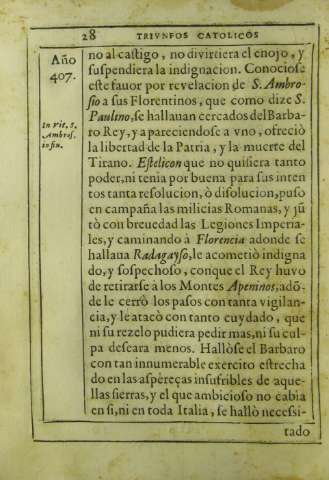 28 TRIVNFOS CATOLICOS
Año
407.
In vit. S.
Ambros.
in fin.
no al castigo, no divirtiera el enojo, y
suspendiera la indignacion. Conociose
este fauor por revelacion de S. Ambro-
sio a sus Florentinos, que como dize S.
Paulino, se hallauan cercados del Barba-
ro Rey, y apareciendose a vno, ofreciò
la libertad de la Patria, y la muerte del
Tirano. Estelicon que no quisiera tanto
poder, ni tenia por buena para sus inten
tos tanta resolucion, ò disolucion, puso
en campaña las milicias Romanas, y jũ
tò con breuedad las Legiones Imperia-
les, y caminando à Florencia adonde se
hallaua Radagayso, le acometiò indigna
do, y sospechoso, conque el Rey huvo
de retirarse à los Montes Apeninos, adõ-
de le cerrò los pasos con tanta vigilan-
cia, y le atacò con tanto cuydado, que
ni su rezelo pudiera pedir mas, ni su cul-
pa deseara menos. Hallòse el Barbaro
con tan innumerable exercito estrecha
do en las aspèreças insufribles de aque-
llas sierras, y el que ambicioso no cabia
en si, ni en toda Italia, se hallò necessi-
tado